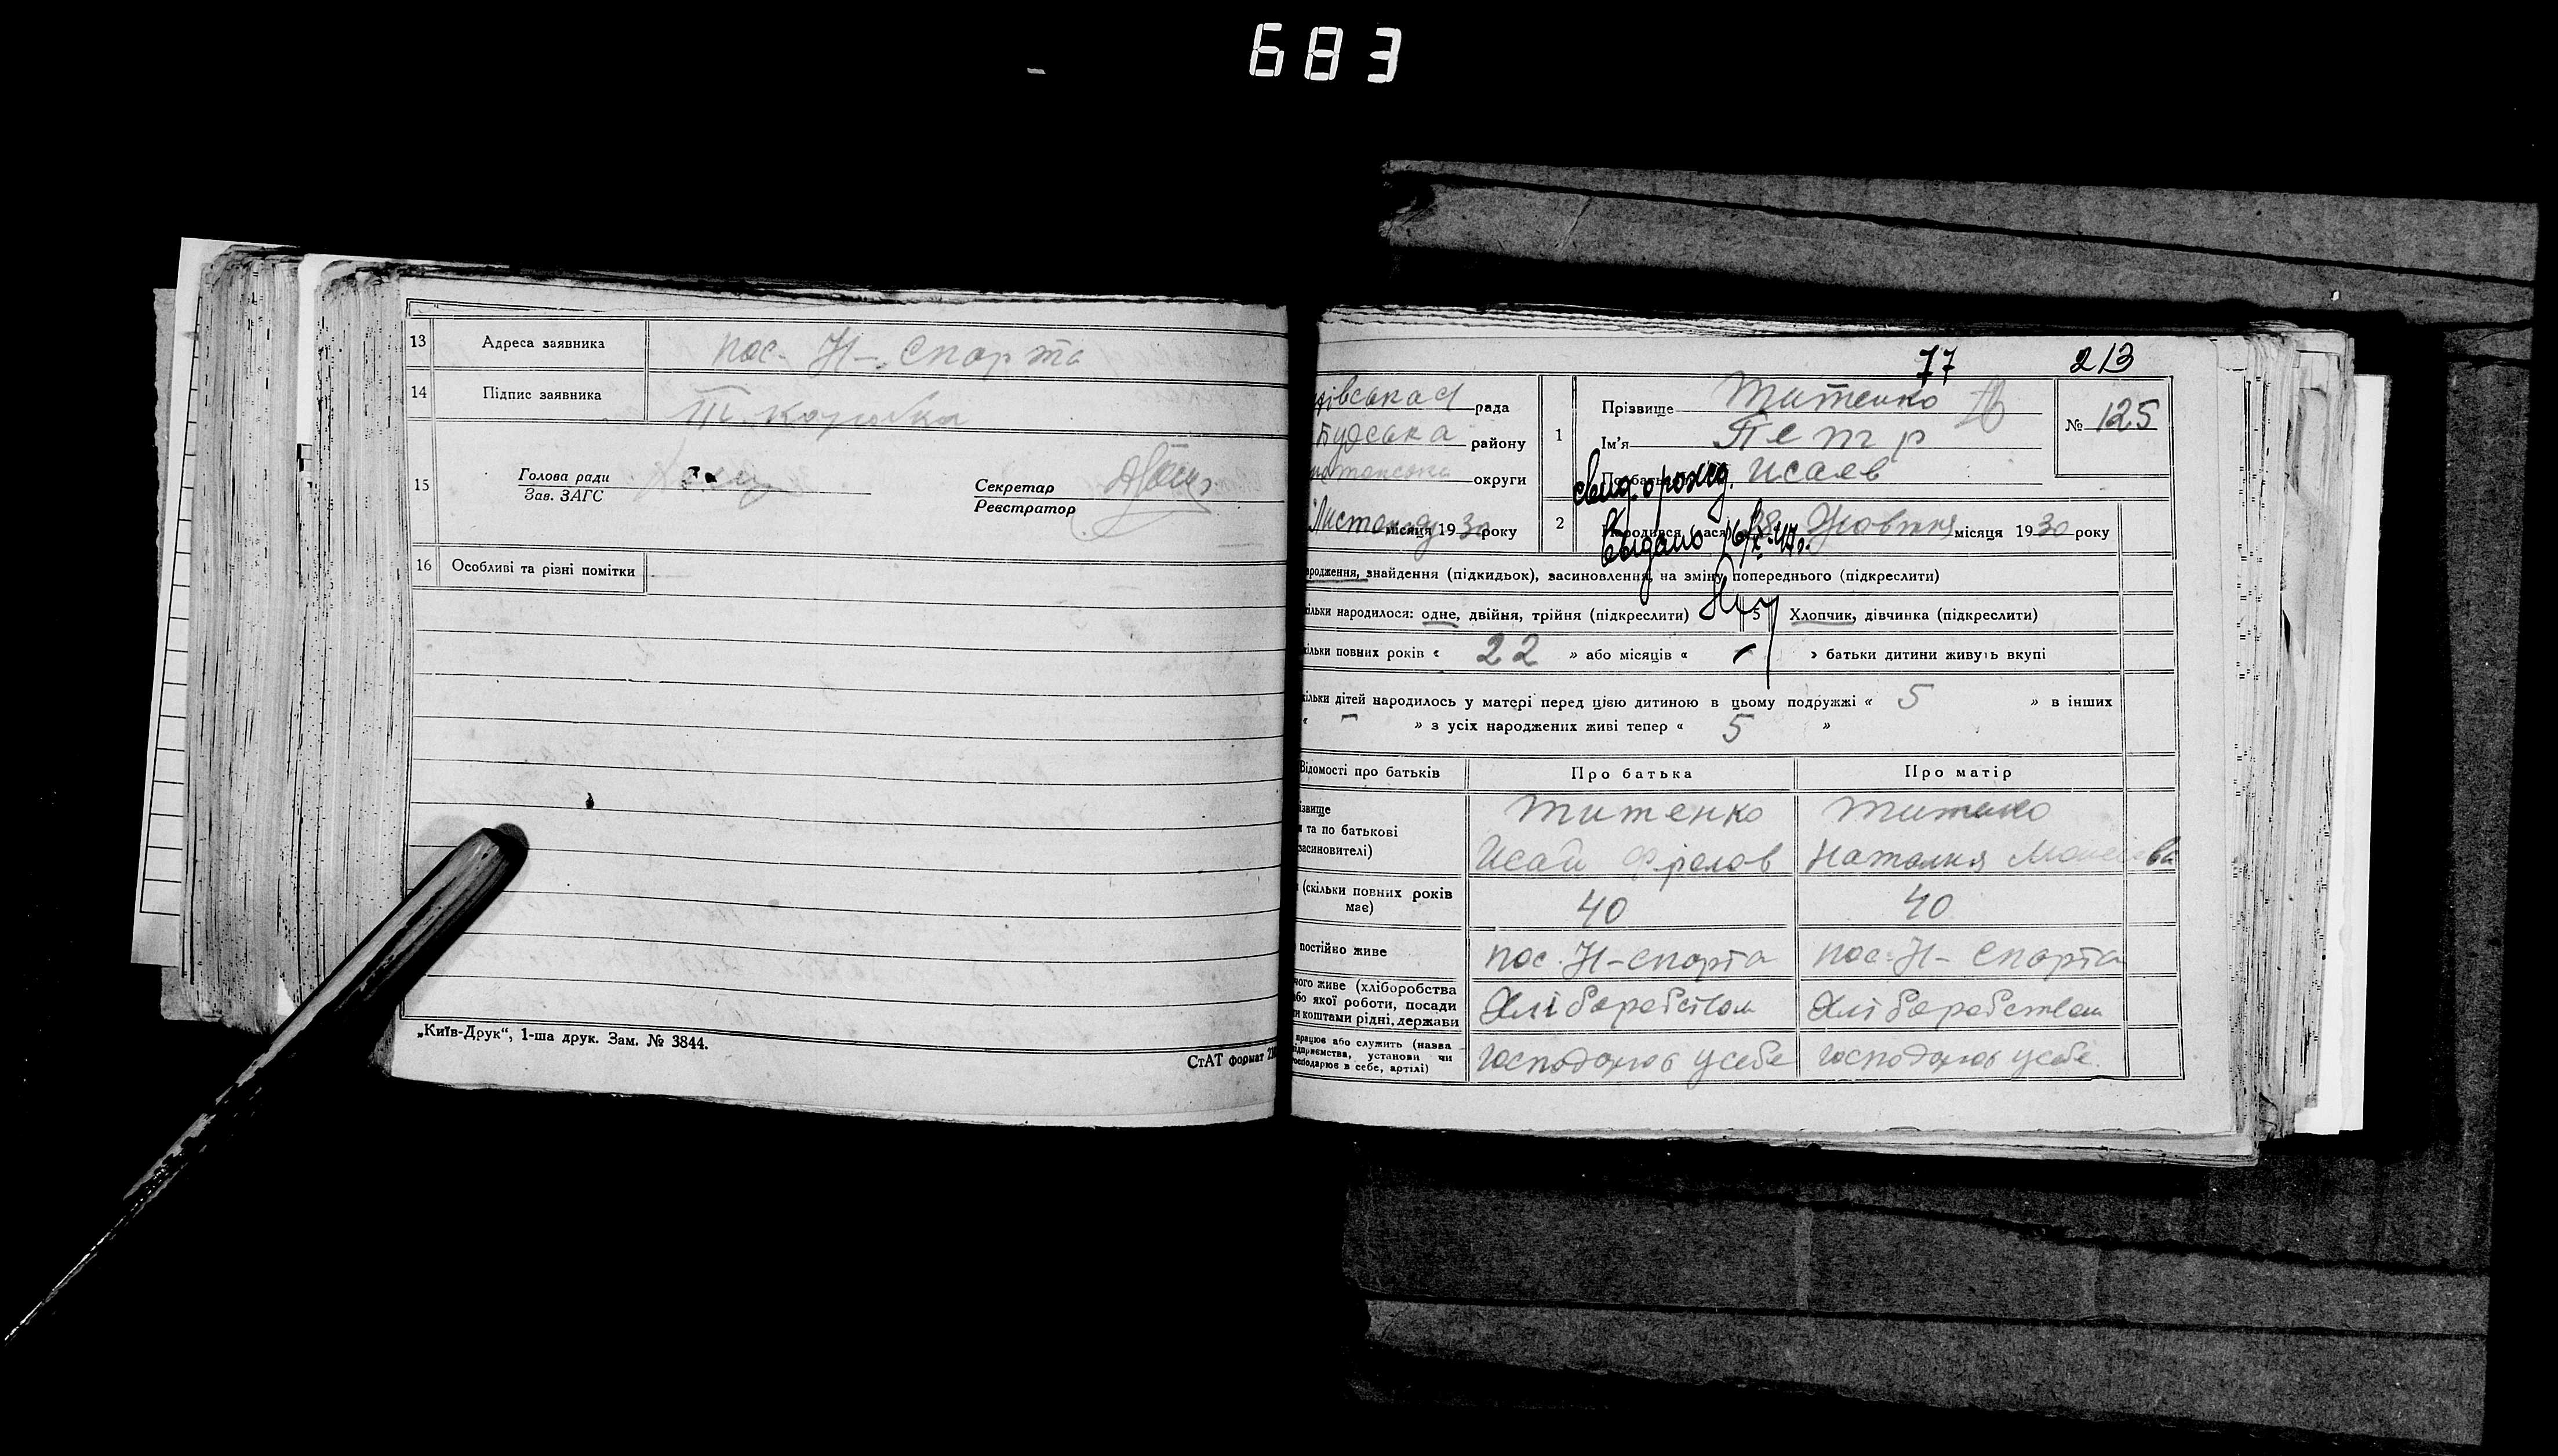 683
13 Адреса заявника пос. Н-Спарта
14 Підпис заявника
15 Голова ради Секретар
Зав. ЗАГС Реєстратор
16 Особливі та різні помітки
„Київ-Друк“, 1-ша друк. Зам. № 3844.
СтАТ формат
77 213
рада
Будська району
округи
Листопаду місяця 1930 року
1 Прізвище Титенко
Ім'я Петр
Исаев
№ 125
свид. о рожд.
2 28 Жовтня місяця 1930 року
Выдано
родження, знайдення (підкидьок), засиновлення, на зміну попереднього (підкреслити)
ільки народилося: одне, двійня, трійня (підкреслити) 5 Хлопчик, дівчинка (підкреслити)
ільки повних років « 22 » або місяців « - » батьки дитини живуть вкупі
ільки дітей народилось у матері перед цією дитиною в цьому подружжі « 5 » в інших
« - » з усіх народжених живі тепер « 5 »
Відомості про батьків Про батька Про матір
ізвище Титенко Титенко
та по батькові
засиновителі) Исай Фролов Наталия
(скільки повних років має) 40 40
постійно живе пос. Н-Спарта пос. Н-Спарта
чого живе (хліборобства
або якої роботи, посади
чи коштами рідні, держави Хліборобством Хліборобством
працює або служить (назва
підприємства, установи чи
господарює в себе, артілі) господарює у себе господарює у себе.